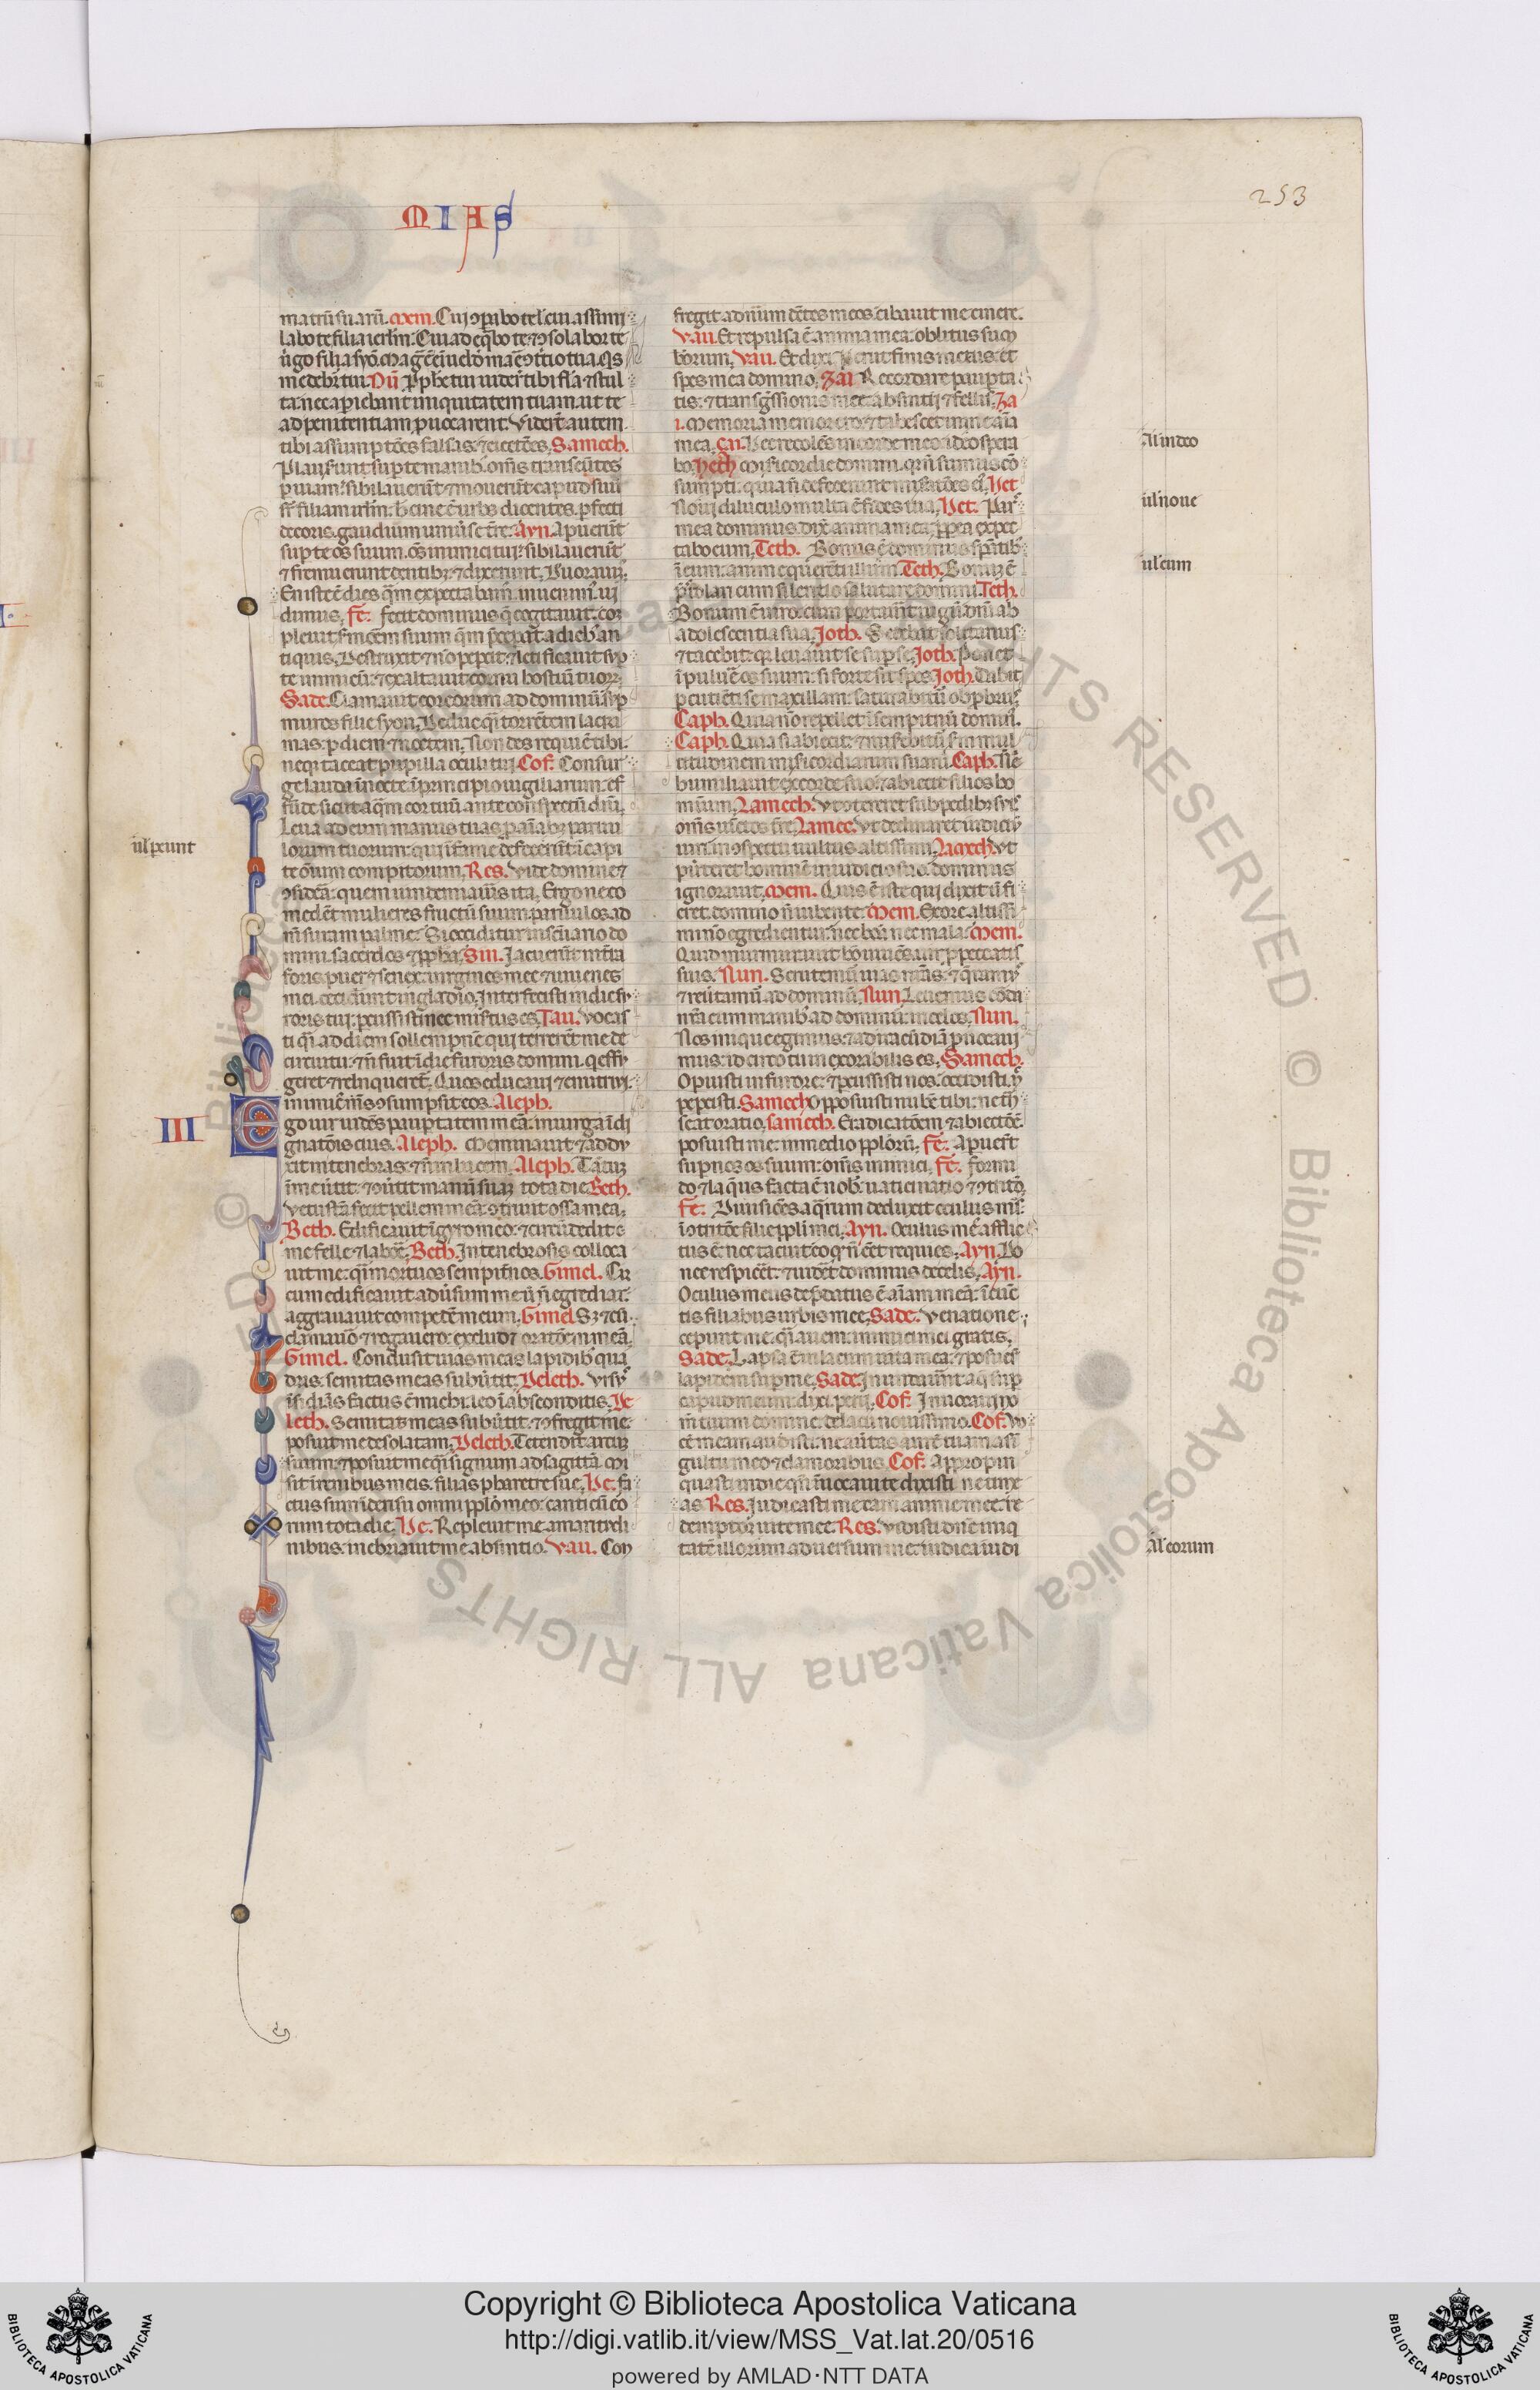 253
MIAS
matrũ suarũ. Mem. Cui ɔpabo te ł cui assimi
labo te filia ierlm̃. Cui adeq̃bo te ⁊ ɔsolabor te
ũgo filia syõ. Mag̃ ẽ
me debit̃ tui. Nũ
ta: nec apiebant iniquitatem tuam. ut te
ad penitentiam puocarent. Viderẽt autem
tibi assumptões falsas. ⁊ eiectões. Samech.
Plauserunt sup te manib. om̃s transeũtes
p uiam: sibilauerũt ⁊ mouerũt caput suũ
sr̃ filiam irlm̃. heccine ẽ urbs dicentes. pfecti
decoris. gaudium uniuse tr̃e. Ayn. Apuerũt
sup te os suum. om̃s inimici tui: sibilauerũt
⁊ fremuerunt dentibꝫ: ⁊ dixerunt. Vorauim̃.
En iste ẽ dies q̃m expectabam̃. inuenim̃. ui
dimus. fe. fecit dominus q̃ cogitauit. com
pleuit smõem suum q̃m p̃cepat a dieb an
tiquis. Destruxit ⁊ nõ pepcit. ⁊ letificauit sup
te inimicũ. ⁊ exaltauit cornu hostiũ tuoꝝ.
Sade. Clamauit cor eorum ad dominũ sup
muros filie syon. Deduc q̃i torrẽtem lacri
mas. p diem ⁊ noctem. Non des requiẽ tibi.
neqꝫ taceat pupilla oculi tui. Cof. Consur
ge lauda in nocte. ĩ principio uigiliarum: ef
funde sicut aq̃m cor tuũ. ante conspectũ dñi.
Leua ad eum manus tuas. p aĩabꝫ paruu
lorum tuorum: qui ĩ fame defecerũt ĩ capi
te oĩum compitorum. Res. Vide domine ⁊
ɔsidera: quem uindemiaũis ita. Ergo ne co
medẽt mulieres fructũ suum. paruulos ad
m̃suram palme. Si occiditur in sc̃uario do
mini. sacerdos ⁊ ppha. Sin. Jacuerũt in tr̃a
foris: puer ⁊ senex. uirgines mee ⁊ iuuenes
mei. ceciderunt in gladio. Interfecisti in die fu
roris tui: pcussisti nec misertus es. Tau. Vocas
ti q̃i ad diem sollempnẽ. qui terrerẽt me de
circuitu: ⁊ ñ fuit ĩ die furoris domini. q̃ effu
geret ⁊ relinqueret̃. Quos educaui ⁊ enutriui.
inimic̃ m̃s ɔsumpsit eos. Aleph.
III
Ego uir uidẽs paupertatem meã. in uirga ĩdi
gnatõis eius. Aleph. Me minauit ⁊ addu
xit in tenebras. ⁊ ñ in lucem. Aleph. Tãtum
ĩ me ũtit. ⁊ ɔũtit manũ suaꝫ tota die Beth.
Vetustã fecit pellem meã. ɔtriuit ossa mea.
Beth. Edificauit ĩ gyro meo. ⁊ circũdedit
me felle ⁊ labore. Beth. In tenebrosis colloca
uit me: q̃i mortuos sempit̃nos. Gimel. Cir
cum edificauit adũsum me ut ñ egrediar.
aggrauauit compedẽ meum. Gimel Sꝫ ⁊ cũ
clamauero ⁊ rogauero: exclusit oratõem meã.
Gimel. Conclusit uias meas lapidib qua
dris. semitas meas subũtit. Deleth. Vrsus
ĩsidiãs factus ẽ michi. leo ĩ absconditis. De
leth. Semitas meas subũtit. ⁊ ɔfregit me:
posuit me desolatam. Deleth. Tetendit arcum
suum. ⁊ posuit me q̃i signum ad sagittã. Mi
sit ĩ renibus meis. filias pharetre sue. He. fa
ctus sum ĩ derisũ omni pplo meo: canticũ eo
rum tota die. He. Repleuit me amaritudi
nibus. inebriauit me absintio. Vau. Con
ul pereunt
fregit ad nũum dẽtes meos. cibauit me cinere.
Vau. Et repulsa ẽ anima mea. oblitus sum
bonorum. Vau. Et dixi periit finis meus: et
spes mea domino. Zai Recordare paupta
tis: ⁊ transgressionis mee absintii ⁊ fellis. Za
i. Memoria memor ero: ⁊ tabescet in me aĩa
mea. Hec recolẽs in corde meo: ideo spera
bo. Heth Misericordie domini. qm̃ sumus cõ
sumpti. quia ñ defecerunt misatões ei. Het
Noui diluculo multa ẽ fides tua. Het. Pars
mea dominus. dix̃ anima mea. pp̃ea expec
tabo eum. Teth. Bonus ẽ dominus sp̃atib
ĩ eum. anime querẽti illum. Teth. Bonuꝫ ẽ
p̃stolari cum silentio salutare domini. Teth.
Bonum ẽ uiro: cum portaũit iugũ dñi ab
adolescentia sua. Joth. Sedebit solitarius
⁊ tacebit: qꝛ leuauit se sup se. Joth. Ponet
ĩ puluẽ os suum. si forte sit spes Joth. Dabit
pcutiẽti se maxillam: saturabit̃ obprobriis.
Caph. Quia nõ repellet ĩ sempitnũ domin̾.
Caph. Quia si abiecit. ⁊ miserebit̃ scdm mul
titudinem misericordiarum suarũ. Caph. Nõ ẽ
humiliauit ex corde suo: ⁊ abiecit filios ho
minum. Lamech. Vt ɔtereret sub pedibꝫ suis
om̃s uĩctos tr̃e. Lamec. Vt declinaret iudiciũ
uiri in ɔspectu uultus altissimi. Lamech. Vt
puẽteret hominẽ in iudicio suo. dominus
ignorauit. Mem. Quis ẽ iste qui dixit ut fi
eret. domino ñ iubente. Mem. Ex ore altissi
mi nõ egredientur: nec bona nec mala. Mem.
Quid murmurauit homo uiuẽs. uir p peccatis
suis. Nun. Scrutemur uias nr̃as. ⁊ queramus
⁊ reũtamur ad dominũ. Nun. Leuemus corda
nr̃a cum manib ad dominũ: in celos. Nun.
Nos inique egimus. ⁊ ad iracũdiã puocaui
mus. idcirco tu inexorabilis es. Samech.
Opuisti in furore: ⁊ pcussisti nos. occidisti. nec
pepcisti. Samech. Opposuisti nubẽ tibi: ne trã
seat oratio. Samech. Eradicatõem ⁊ abiectõẽ
posuisti me: in medio pplorũ. Fe. Apuer̃t
sup nos os suum: om̃s inimici. Fe. Formi
do ⁊ laq̃us facta ẽ nob. uaticinatio ⁊ ɔtritio.
Fe. Diuisiões aq̃rum deduxit oculus m̃s.
ĩ ɔtritõe filie ppli mei. Ayn. Oculus me afflic
tus ẽ: nec tacuit eo qꝛ ñ ẽet requies. Ayn. Do
nec respicẽt ⁊ uidẽt dominus de celis. Ayn.
Oculus meus depdatus ẽ aĩam meã. ĩ cũc
tis filiabus urbis mee. Sade. Venatione
cepunt me: q̃i auem. inimici mei gratis.
Sade. Lapsa ẽ in lacum uita mea: ⁊ posuerũt
lapidem sup me. Sade. Inundauẽt aque sup
caput meum: dixi perii. Cof. Inuocaui no
m̃ tuum domine: de lacu nouissimo. Cof. Vo
cẽ meam audisti. ne auertas aurẽ tuam a sin
gultu meo ⁊ clamoribus. Cof. Appropin
quasti in die qñ inuocaui te dixisti ne time
as. Res. Judicasti me causam anime mee: re
demptor uite mee. Res. Vidisti dñe iniq
tatẽ illorum aduersum me: iudica iudi
Al in deo
ul noue
ul eum
Al eorum
Copyright © Biblioteca Apostolica Vaticana
http://digi.vatlib.it/view/MSS_Vat.lat.20/0516
powered by AMLAD·NTT DATA
BIBLIOTECA APOSTOLICA VATICANA
BIBLIOTECA APOSTOLICA VATICANA
© Biblioteca Apostolica Vaticana ALL RIGHTS RESERVED